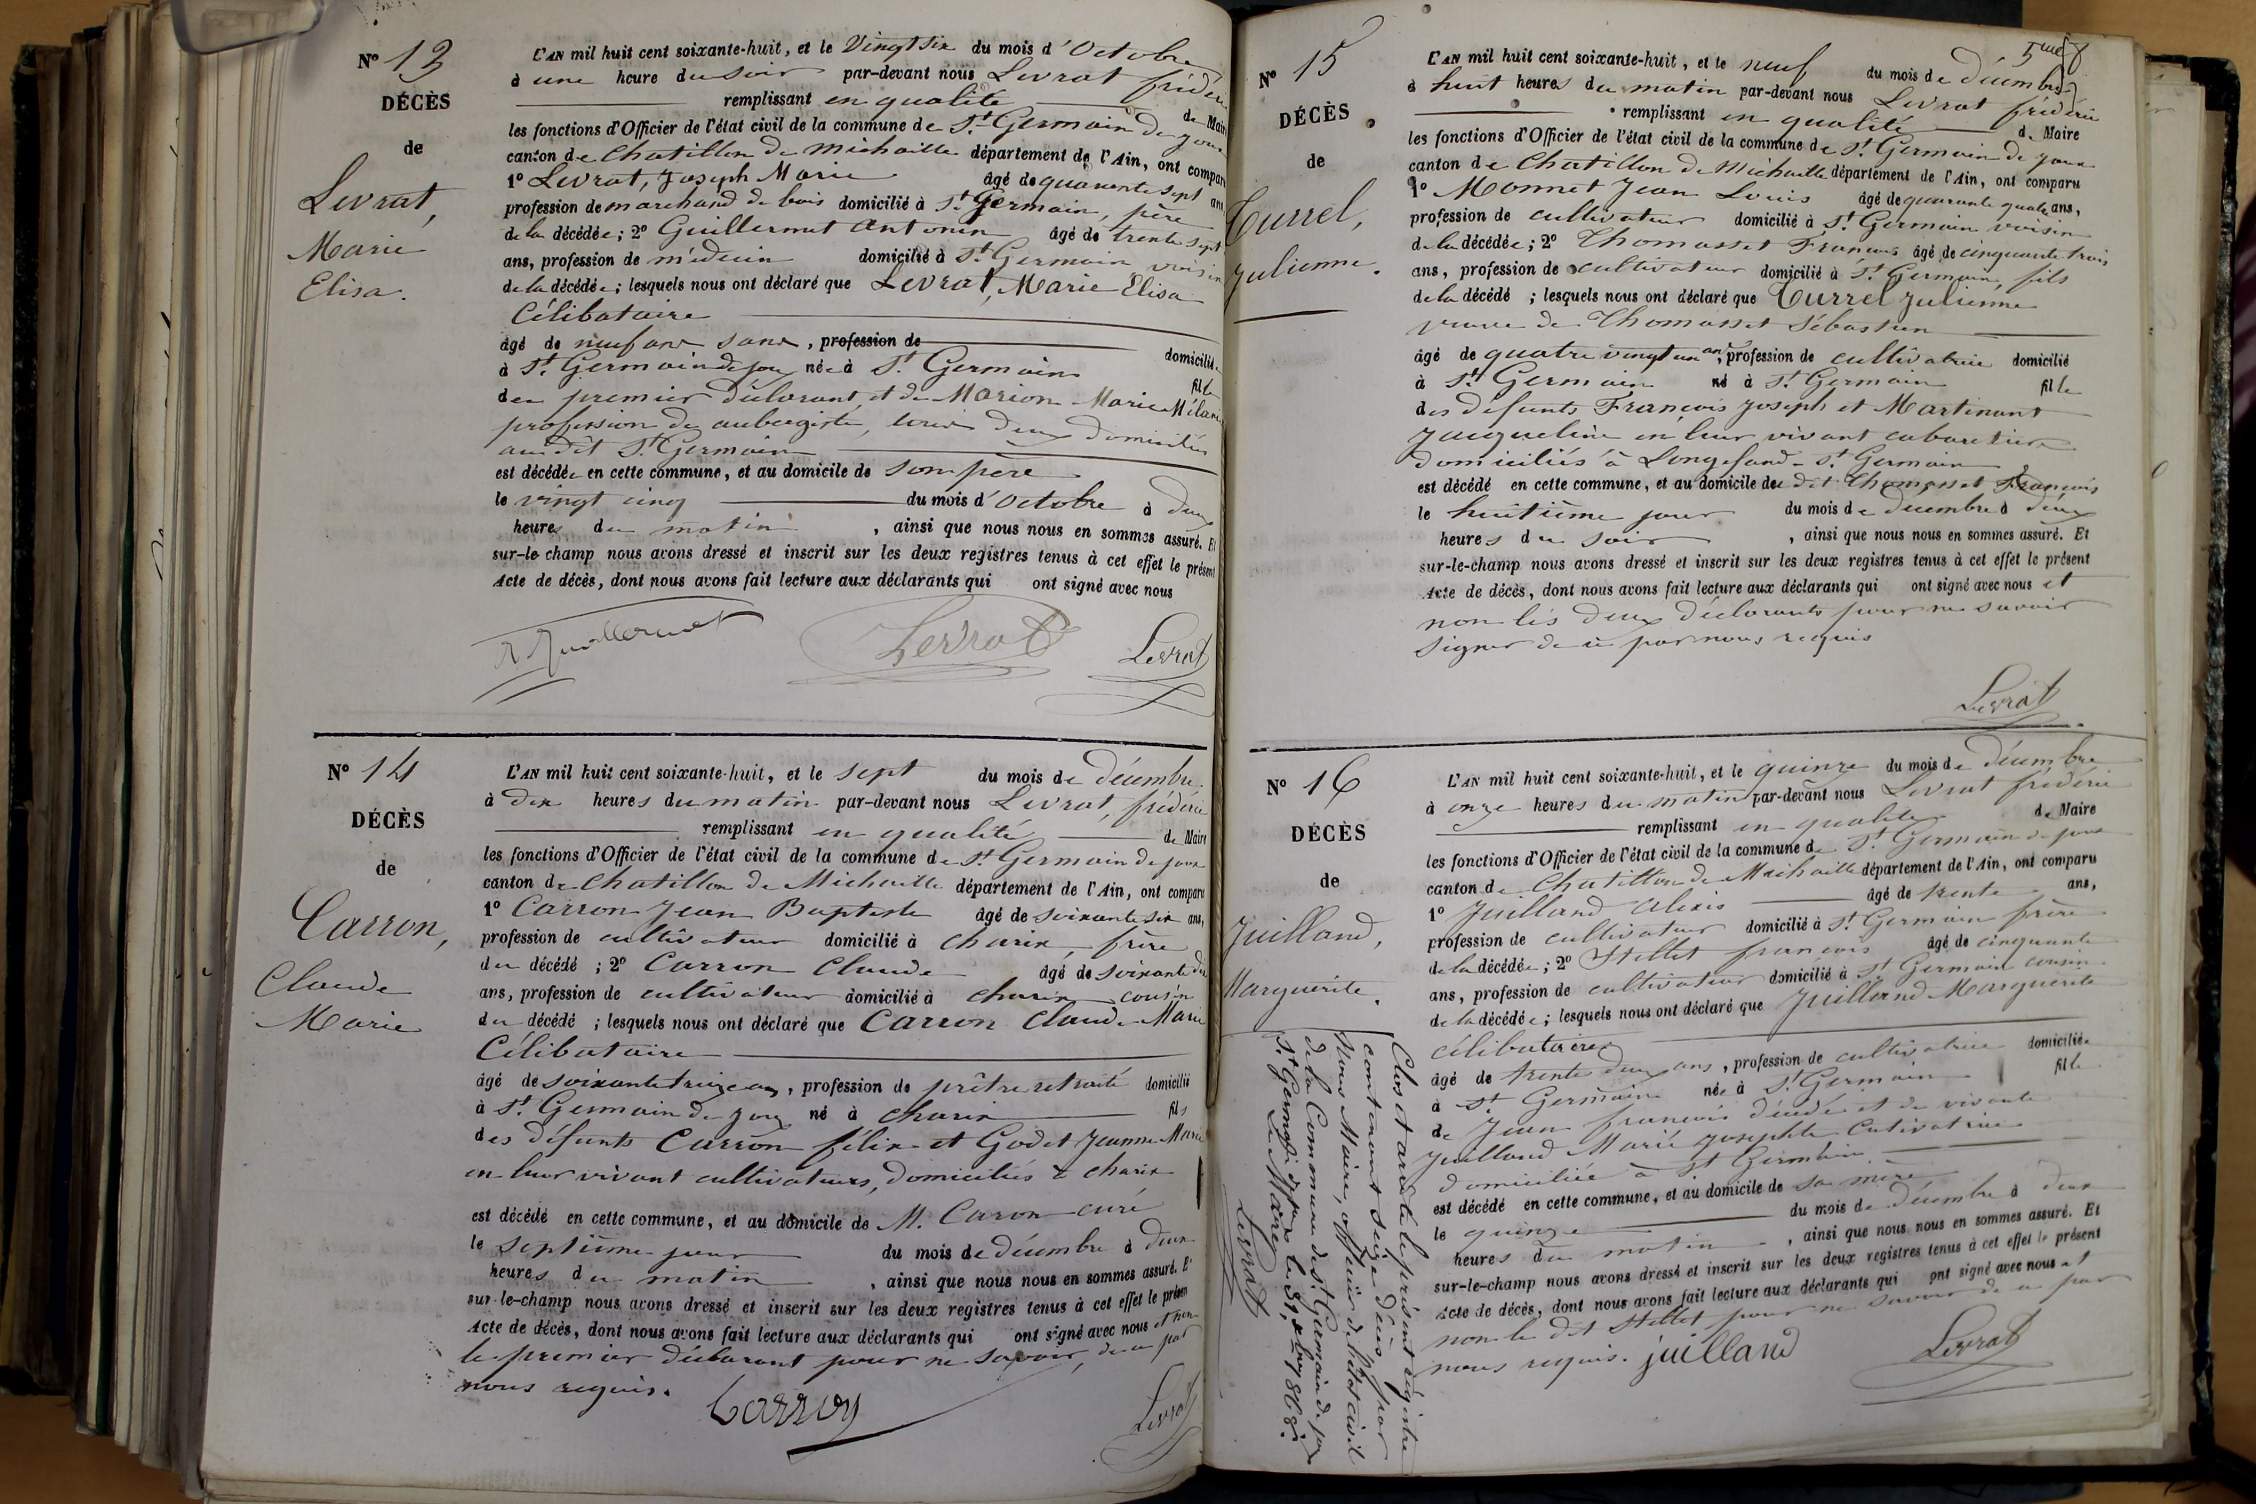 N° 13
DÉCÈS
de
Levrat,
Marie
Elisa.
L'AN mil huit cent soixante-huit, et le Vingt six du mois d'Octobre
à une heure du soir par-devant nous Levrat frédéric
remplissant en qualité de Maire
les fonctions d'Officier de l'état civil de la commune de St Germain de Joux
canton de Chatillon de Michaille département de l'Ain, ont comparu
1° Levrat, Joseph Marie âgé de quarante sept ans
profession de marchand de bois domicilié à St Germain, père
de la décédée ; 2° Guillermet Antonin âgé de trente sept
ans, profession de médecin domicilié à St Germain voisin
de la décédée ; lesquels nous ont déclaré que Levrat, Marie Elisa
Célibataire
âgé de neuf ans sans, profession de domiciliée
à St Germain de Joux née à St Germain fille
du premier déclarant et de Marion Marie Mélanie
profession de aubergiste, tous deux domiciliés
au dit St Germain
est décédée en cette commune, et au domicile de son père
le vingt cinq du mois d'Octobre à deux
heures du matin, ainsi que nous nous en sommes assuré. Et
sur-le-champ nous avons dressé et inscrit sur les deux registres tenus à cet effet le présent
Acte de décès, dont nous avons fait lecture aux déclarants qui ont signé avec nous
A. Guillermet Levrat Levrat
N° 14
DÉCÈS
de
Carron,
Claude
Marie
L'AN mil huit cent soixante-huit, et le sept du mois de décembre
à dix heures du matin par-devant nous Levrat, frédéric
remplissant en qualité de Maire
les fonctions d'Officier de l'état civil de la commune de St Germain de joux
canton de Chatillon de Michaille département de l'Ain, ont comparu
1° Carron Jean Baptiste âgé de soixante six ans,
profession de cultivateur domicilié à Charix, frère
du décédé ; 2° Carron Claude âgé de soixante dix
ans, profession de cultivateur domicilié à charix cousin
du décédé ; lesquels nous ont déclaré que Carron Claude Marie
Célibataire
âgé de soixante treize ans, profession de prêtre retraité domicilié
à St Germain de Joux né à Charix fils
des défunts Carron félix et Godet Jeanne Marie
en leur vivant cultivateurs, domiciliés à charix
est décédé en cette commune, et au domicile de M. Caron curé
le septième jour du mois de décembre à deux
heures du matin, ainsi que nous nous en sommes assuré. Et
sur-le-champ nous avons dressé et inscrit sur les deux registres tenus à cet effet le présent
Acte de décès, dont nous avons fait lecture aux déclarants qui ont signé avec nous et non
le premier déclarant pour ne savoir, de ce par
nous requis.
Carron Levrat
N° 15
DÉCÈS
de
Turrel,
Julienne.
L'AN mil huit cent soixante-huit, et le neuf du mois de décembre
à huit heures du matin par-devant nous Levrat frédéric
remplissant en qualité de Maire
les fonctions d'Officier de l'état civil de la commune de St Germain de joux
canton de Chatillon de Michaille département de l'Ain, ont comparu
1° Monnet Jean Louis âgé de quarante quatre ans,
profession de cultivateur domicilié à St Germain voisin
de la décédée ; 2° Thomasset François âgé de cinquante trois
ans, profession de cultivateur domicilié à St Germain, fils
de la décédé ; lesquels nous ont déclaré que Turrel Julienne
veuve de Thomasset Sébastien
âgé de quatre vingt un ans, profession de cultivatrice domicilié
à St Germain né à St Germain fille
des défunts François Joseph et Martinant
Jacqueline en leur vivant cabaretiers
domiciliés à Longefand - St Germain
est décédé en cette commune, et au domicile de dit Thomasset François
le huitième jour du mois de décembre à deux
heures du soir, ainsi que nous nous en sommes assuré. Et
sur-le-champ nous avons dressé et inscrit sur les deux registres tenus à cet effet le présent
Acte de décès, dont nous avons fait lecture aux déclarants qui ont signé avec nous et
non les deux déclarants pour ne savoir
signer de ce par nous requis
Levrat
N° 16
DÉCÈS
de
Juilland,
Marguerite.
L'AN mil huit cent soixante-huit, et le quinze du mois de décembre
à onze heures du matin par-devant nous Levrat frédéric
remplissant en qualité de Maire
les fonctions d'Officier de l'état civil de la commune de St Germain de joux
canton de Chatillon de Michaille département de l'Ain, ont comparu
1° Juilland Alexis âgé de trente ans,
profession de cultivateur domicilié à St Germain frère
de la décédée ; 2° Stellet françois âgé de cinquante
ans, profession de cultivateur domicilié à St Germain cousin
de la décédée ; lesquels nous ont déclaré que Juilland Marguerite
célibataire
âgé de trente deux ans, profession de cultivatrice domiciliée
à St Germain née à St Germain fille
de Jean françois décédé et de vivante
Juilland Marie Josephte Cultivatrice
domiciliée à St Germain
est décédé en cette commune, et au domicile de sa mère
le quinze du mois de décembre à deux
heures du matin, ainsi que nous nous en sommes assuré. Et
sur-le-champ nous avons dressé et inscrit sur les deux registres tenus à cet effet le présent
Acte de décès, dont nous avons fait lecture aux déclarants qui ont signé avec nous et
non le dit Stellet pour ne savoir de ce par
nous requis. juilland Levrat
Clos et arrêté le présent régistre
contenant seize décès, par
Nous Maire, officier de l'état civil
de la Commune de St Germain de joux
St Germain de joux le 31 xbre 1868.
Le Maire
Levrat